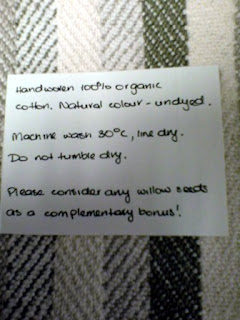 Handwoven 100% organic
cotton. Natural colour - undyed.
Machine wash 30°C, line dry.
Do not tumble dry.
Please consider any willow seeds
as a complementary bonus!